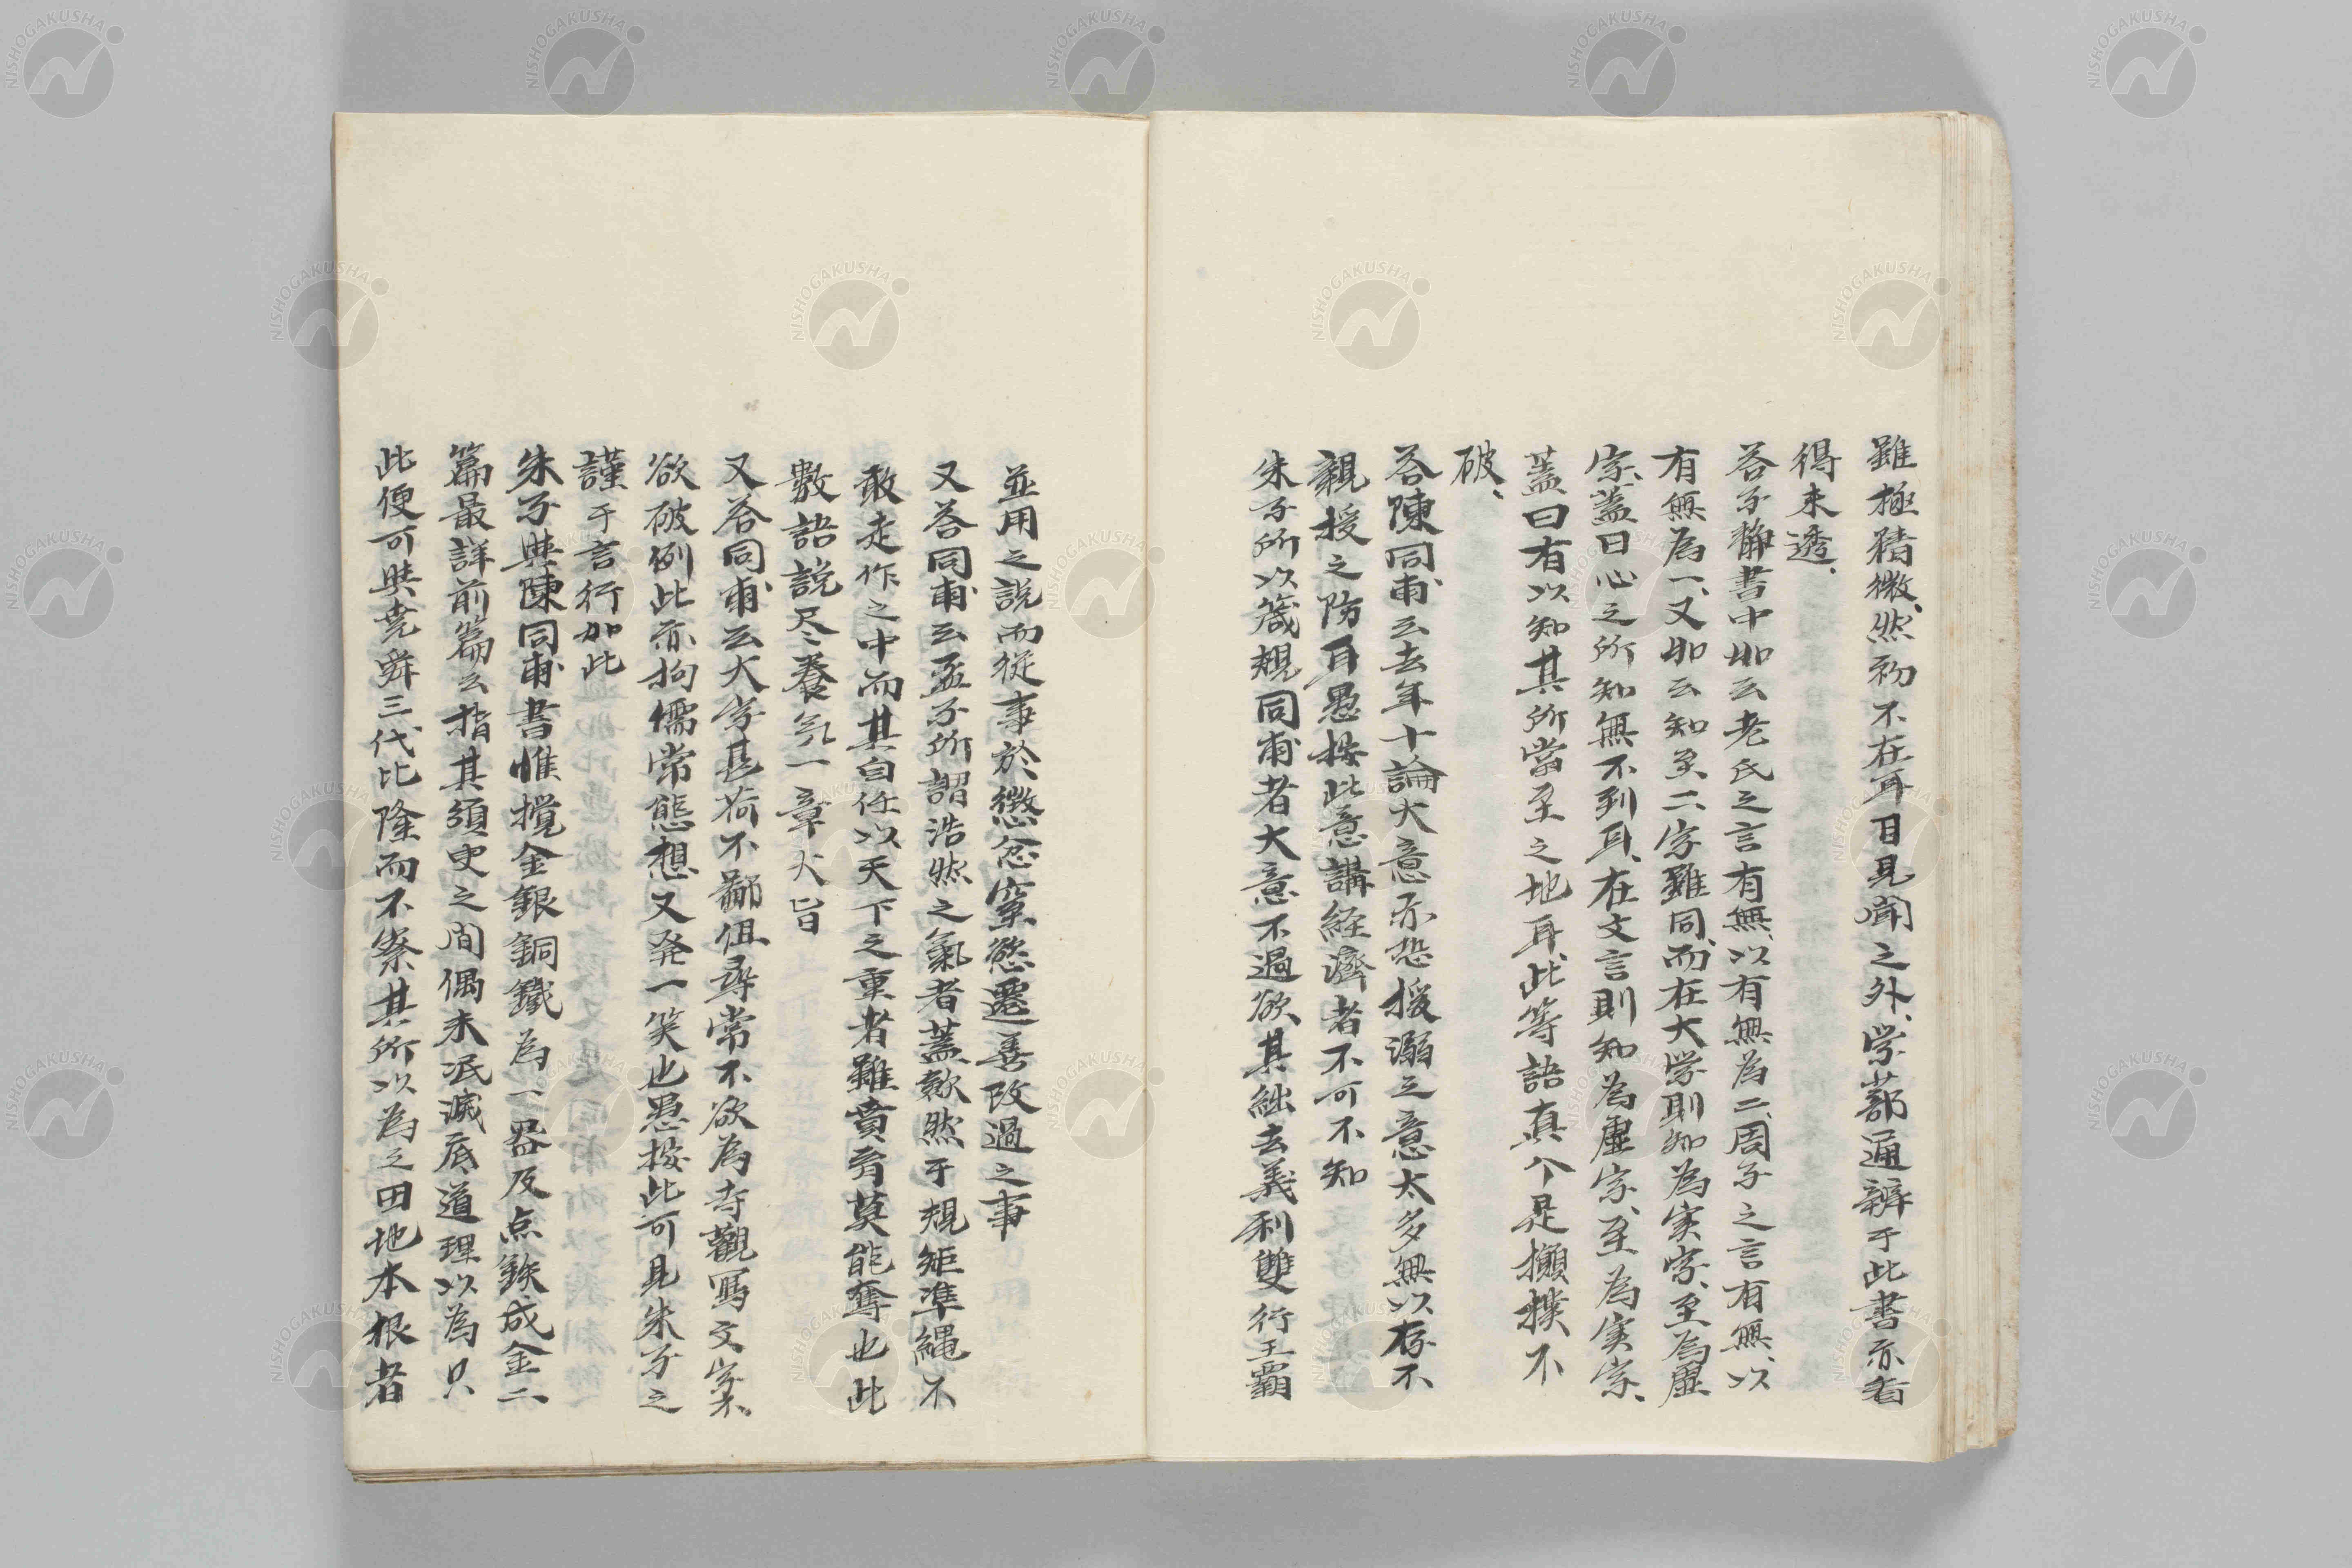 雖極精微、然初不在耳目見聞之外、学蔀通辨于此書亦看
得未透、
答子静書中如云老氏之言有無、以有無為二、周子之言有無、以
有無為一、又如云知至二字雖同、而在大学則知為実字、至為虚
字、蓋曰心之所知無不到耳、在文言則知為虚字、至為実字、
蓋曰有以知其所當至之地耳、此等語真个是攧撲不
破、
答陳同甫云去年十論大意亦恐援溺之意太多無以存不
親授之防耳愚按此意講経濟者不可不知
朱子所以箴規同甫者大意不過欲其絀去義利雙行王霸
並用之説而従事於懲忿窒慾遷善改過之事
又答同甫云孟子所謂浩然之氣者蓋歛然于規矩準縄不
敢走作之中而其自任以天下之重者雖賁育莫能奪也此
數語説尽養気一章大旨
又答同甫云大字甚荷不鄙但尋常不欲為寺觀写文字不
欲破例此亦拘儒常態想又発一笑也愚按此可見朱子之
謹于言行如此
朱子與陳同甫書惟攪金銀銅鐵為一器及点鉄成金二
篇最詳前篇云指其須臾之間偶未泯滅底道理以為只
此便可與堯舜三代比隆而不察其所以為之田地本根者
NISHOGAKUSHA